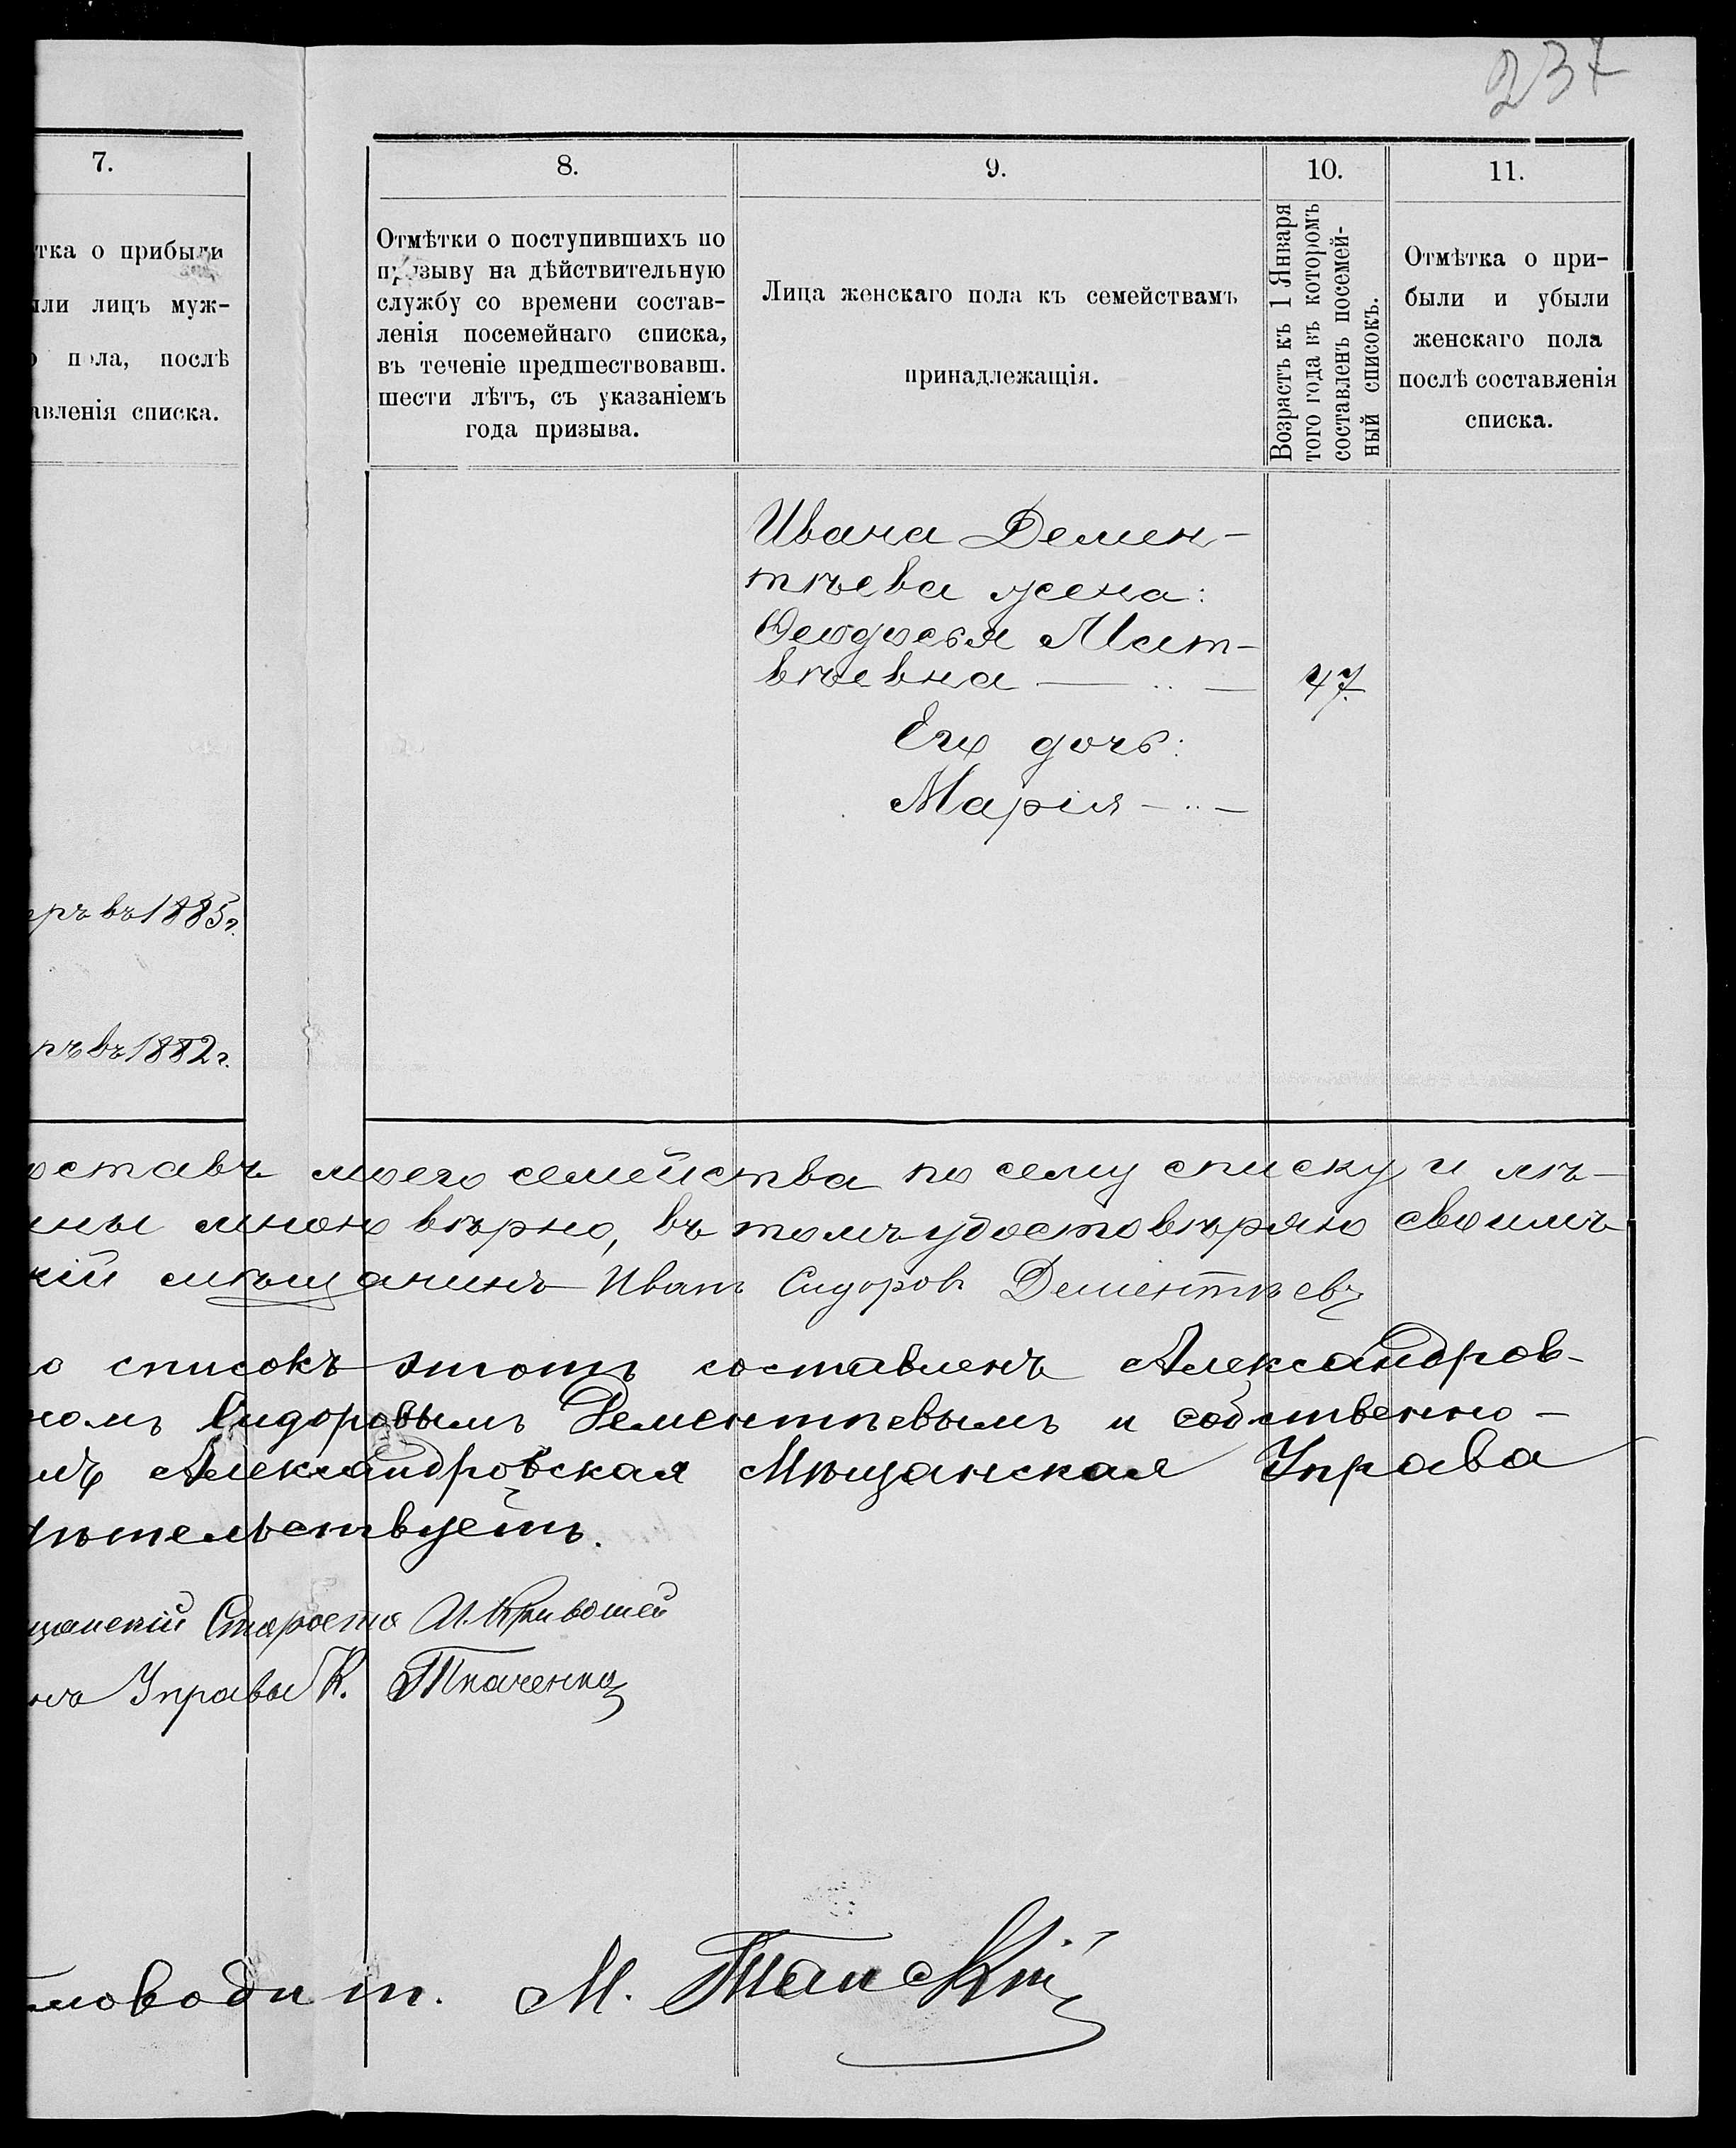 237
7.
тка о прибыли
ыли лицъ муж-
о пола, послѣ
авленія списка.
8.
Отмѣтки о поступившихъ по
призыву на дѣйствительную
службу со времени состав-
ленія посемейнаго списка,
въ теченіе предшествовавш.
шести лѣтъ, съ указаніемъ
года призыва.
9.
Лица женскаго пола къ семействамъ
принадлежащія.
10.
Возрастъ къ 1 Января
того года въ которомъ
составленъ посемей-
ный списокъ.
11.
Отмѣтка о при-
были и убыли
женскаго пола
послѣ составленія
списка.
Ивана Демен-
тѣева жена:
Феодосья Мат-
вѣевна — .. — 47.
Его дочь:
Марія — .. —
ръ въ 1885 г.
ръ въ 1882 г.
оставъ моего семейства по сему списку и лѣ-
ны мною вѣрно, въ томъ удостовѣряю своимъ
кій мѣщанинъ Иванъ Сидоровъ Дементѣевъ
о списокъ этотъ составленъ Александров-
номъ Сидоровымъ Дементѣевымъ и собственно-
мъ Александровская Мѣщанская Управа
дѣтельствуетъ.
щанскій Староста И. Кривошей
нъ Управы К. Ткаченко
ловодит. М. Танскій